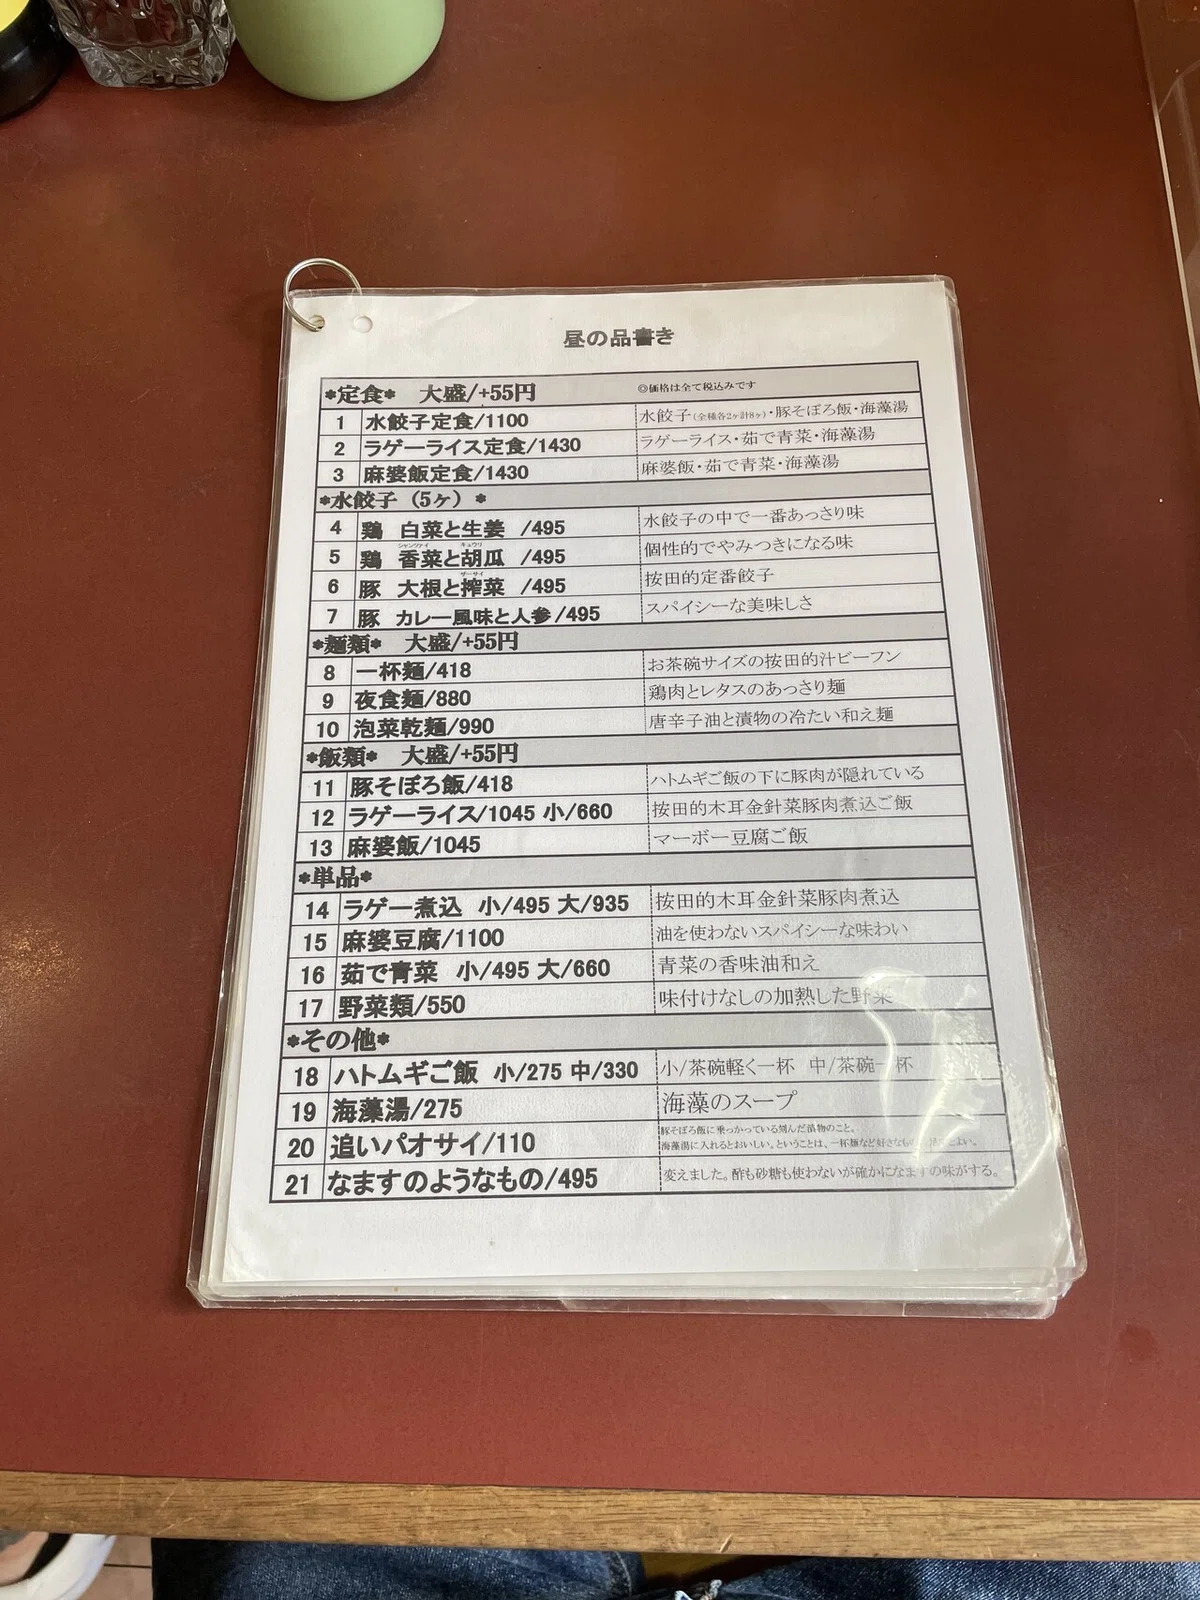 昼の品書き
*定食* 大盛/+55円 ◎価格は全て税込みです
1 水餃子定食/1100 水餃子(全種各2ヶ計8ヶ)・豚そぼろ飯・海藻湯
2 ラゲーライス定食/1430 ラゲーライス・茹で青菜・海藻湯
3 麻婆飯定食/1430 麻婆飯・茹で青菜・海藻湯
*水餃子(5ヶ)*
4 鶏 白菜と生姜 /495 水餃子の中で一番あっさり味
シャンツァイ キュウリ
5 鶏 香菜と胡瓜 /495 個性的でやみつきになる味
ザーサイ
6 豚 大根と搾菜 /495 按田的定番餃子
7 豚 カレー風味と人参/495 スパイシーな美味しさ
*麺類* 大盛/+55円
8 一杯麺/418 お茶碗サイズの按田的汁ビーフン
9 夜食麺/880 鶏肉とレタスのあっさり麺
10 泡菜乾麺/990 唐辛子油と漬物の冷たい和え麺
*飯類* 大盛/+55円
11 豚そぼろ飯/418 ハトムギご飯の下に豚肉が隠れている
12 ラゲーライス/1045 小/660 按田的木耳金針菜豚肉煮込ご飯
13 麻婆飯/1045 マーボー豆腐ご飯
*単品*
14 ラゲー煮込 小/495 大/935 按田的木耳金針菜豚肉煮込
15 麻婆豆腐/1100 油を使わないスパイシーな味わい
16 茹で青菜 小/495 大/660 青菜の香味油和え
17 野菜類/550 味付けなしの加熱した野菜
*その他*
18 ハトムギご飯 小/275 中/330 小/茶碗軽く一杯 中/茶碗一杯
19 海藻湯/275 海藻のスープ
20 追いパオサイ/110 豚そぼろ飯に乗っかっている刻んだ漬物のこと。
海藻湯に入れるとおいしい。ということは、一杯麺など好きなもの
21 なますのようなもの/495 変えました。酢も砂糖も使わないが確かになますの味がする。